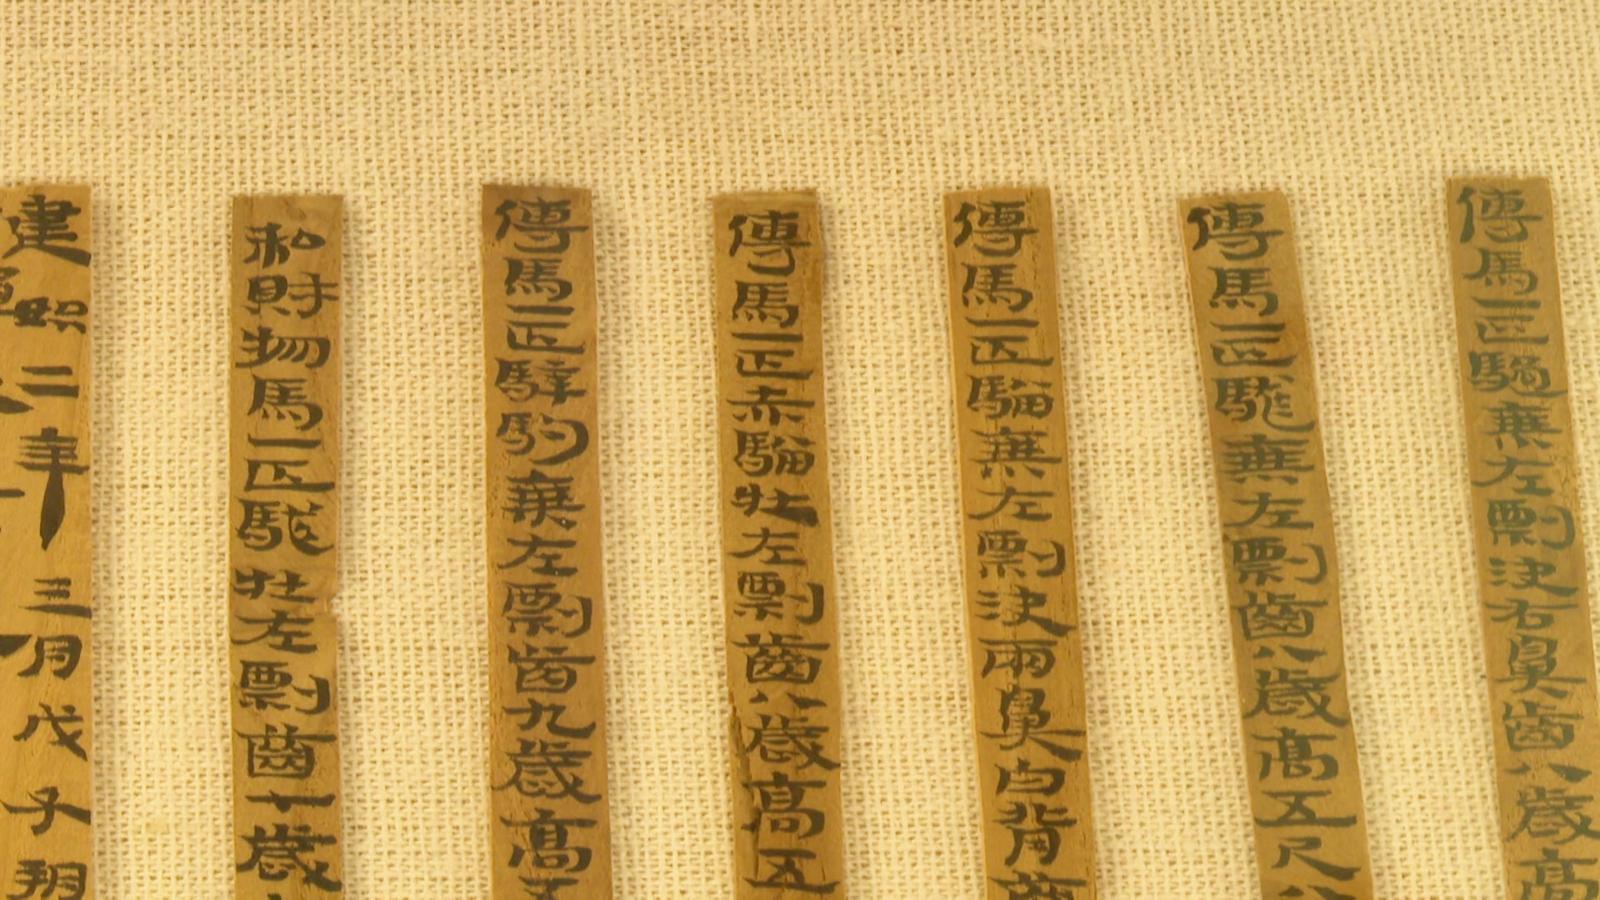 傳馬一匹騧乘左剽決右鼻齒八歲高
傳馬一匹駹乘左剽齒八歲高五尺八
傳馬一匹騮乘左剽決兩鼻白背齒
傳馬一匹赤騮牡左剽齒八歲高五
傳馬一匹騂駒乘左剽齒九歲高五
私財物馬一匹駹牡左剽齒十歲
建昭二年三月戊子朔